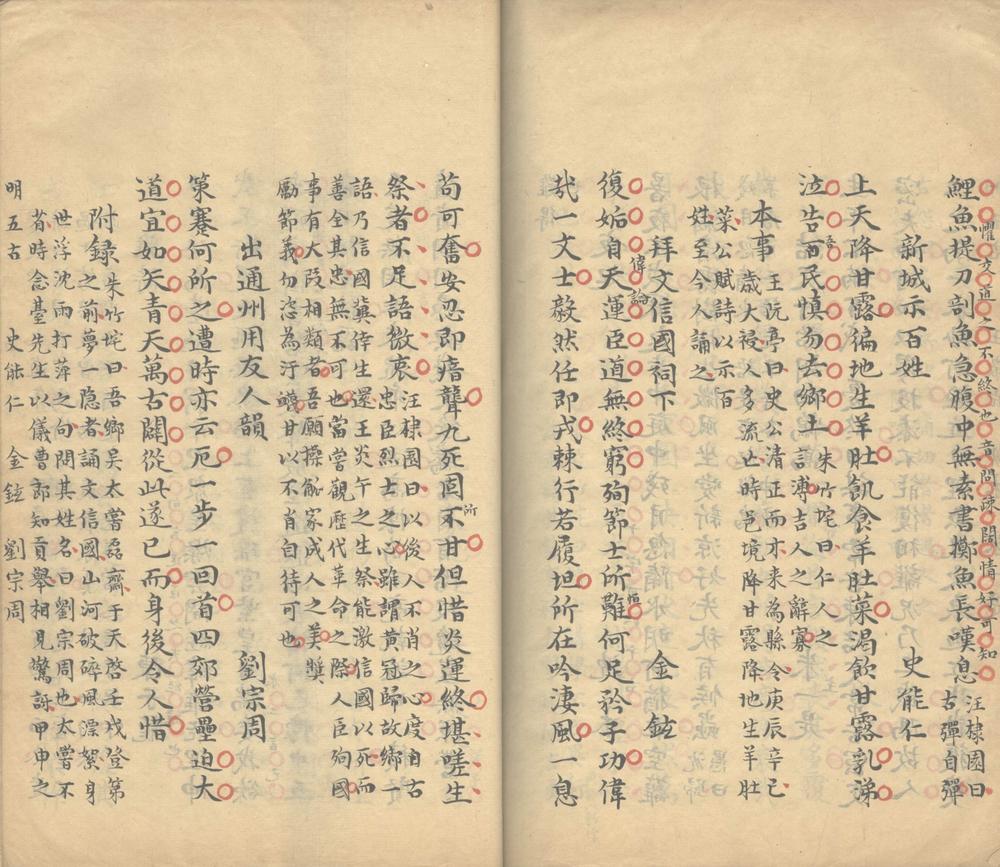 鯉魚提刀剖魚急腹中無素書擲魚長嘆息
汪棣園曰
古彈自彈
懼友道之不終也音問疎闊情好可知
新城示百姓　史能仁
上天降甘露徧地生羊肚飢食羊肚菜渴飲甘露乳涕
泣告百民慎勿去鄉土
朱竹垞曰仁人之
言溥吉人之辭家
本事
王阮亭曰史公清正而才来為縣令庚辰辛巳
歲大祲人多流亡時邑境降甘露降地生羊肚
菜公賦詩以示百
姓至今人誦之
拜文信國祠下　金鉉
復姤自天運臣道無終窮殉節士所難何足矜子功偉
偉論
恒
哉一文士毅然任即戎棘行若履坦所在吟淒風一息
苟可奮安忍即瘖聾九死固不甘但惜炎運終堪嗟生
所
祭者不足語微衷
汪棣園曰以後人不肖之心度自古
忠臣烈士之心雖謂黃冠歸故鄉一
語乃信國冀倖生還王炎午之生祭能激信國以死而
善全其忠無不可也當嘗觀歷代革命之際人臣殉國
事有大段相類者吾願操觚家成人之美獎
勵節義勿恣為汙衊甘以不肖自待可也
出通州用友人韻　劉宗周
策蹇何所之遭時亦云厄一步一回首四郊營壘迫大
道宜如矢青天萬古闢從此遂已而身後令人惜
附録
朱竹垞曰吾鄉吴太嘗磊齋于天啓壬戌登第
之前夢一隐者誦文信國山河破碎風漂絮身
世浮沈雨打萍之句問其姓名曰劉宗周也太嘗不
省時念臺先生以儀曹郎知貢舉相見驚訝甲申之
明五古　史能仁　金鉉　劉宗周